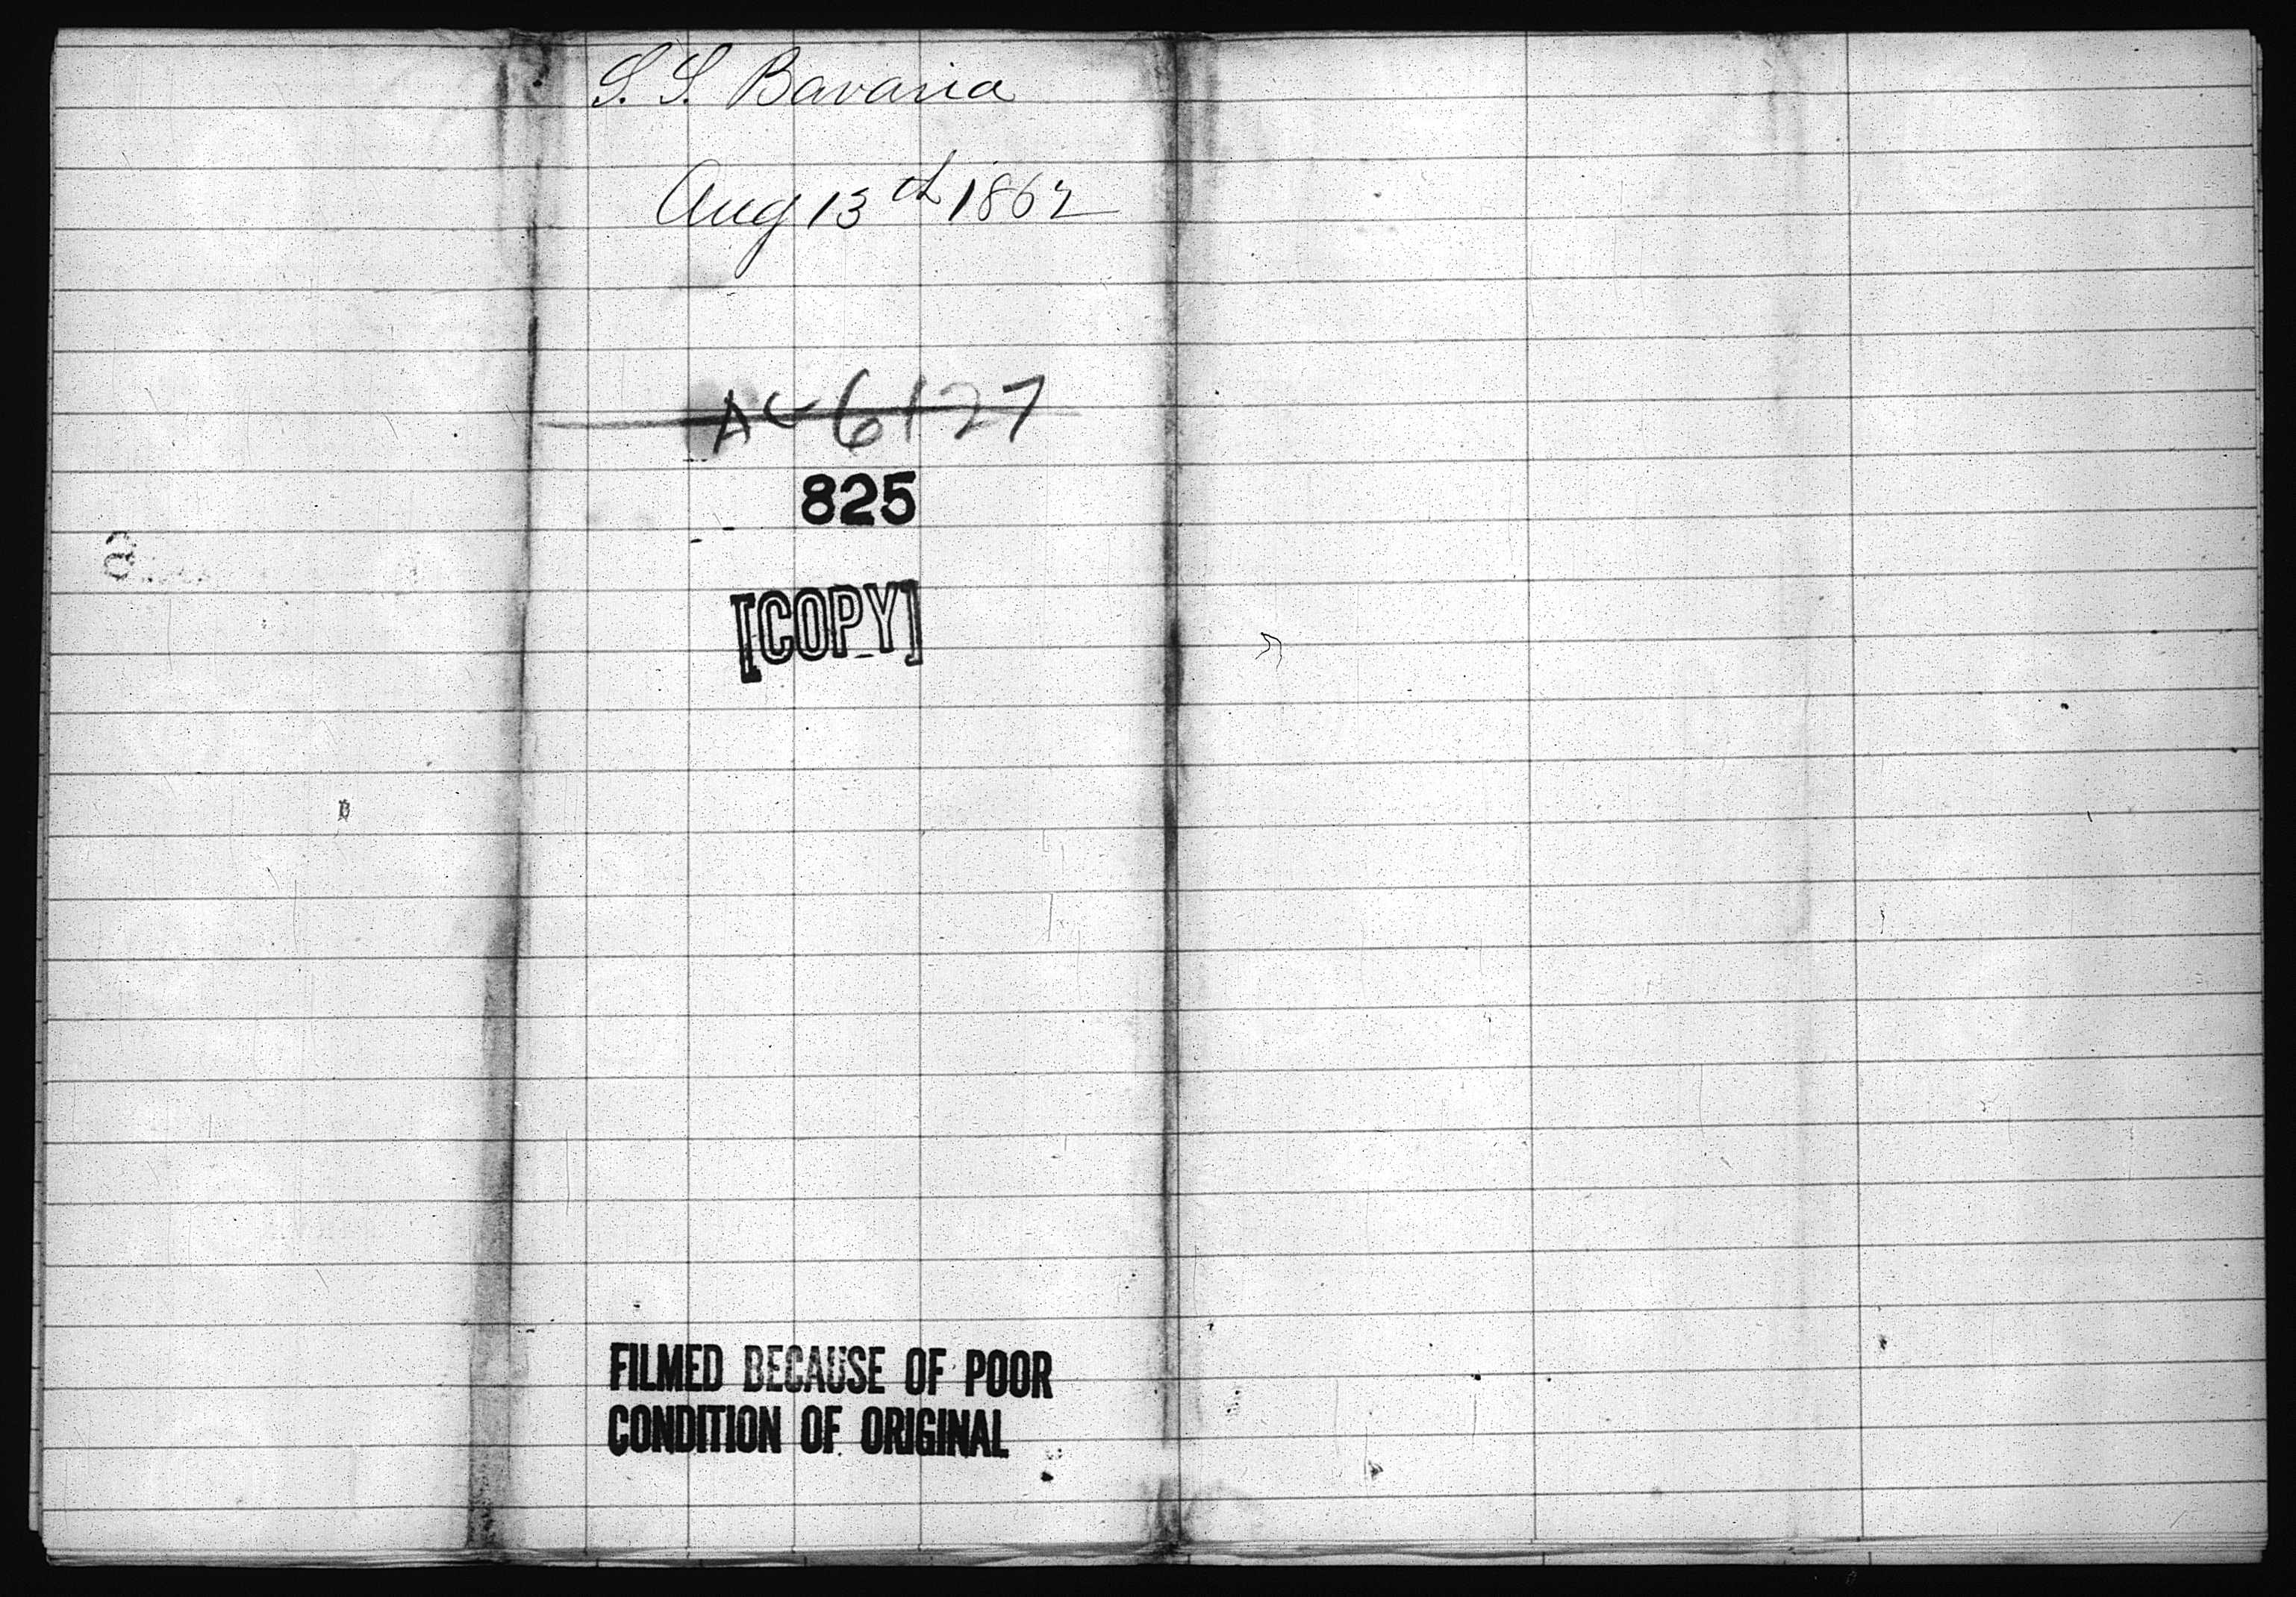 S. S. Bavaria
Aug 13th 1862
AC 6127
825
[COPY]
FILMED BECAUSE OF POOR
CONDITION OF ORIGINAL